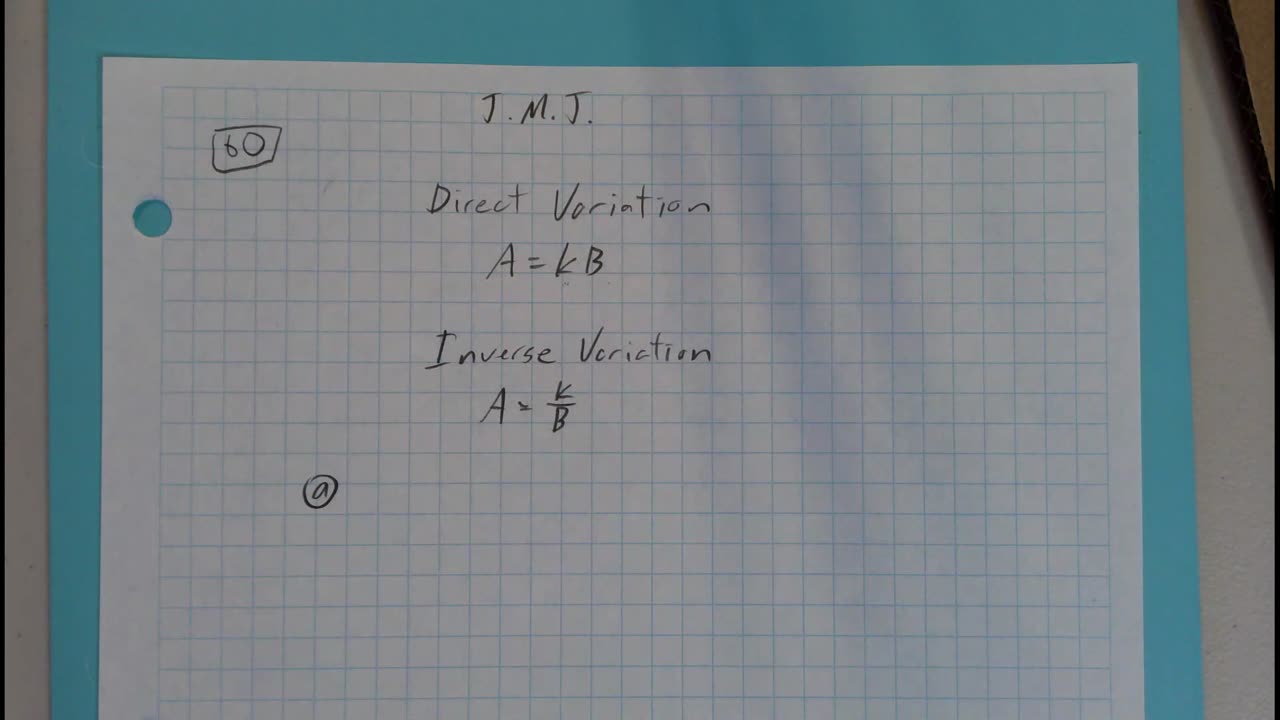 J.M.J.
60
Direct Variation
A = kB
Inverse Variation
A = k/B
a